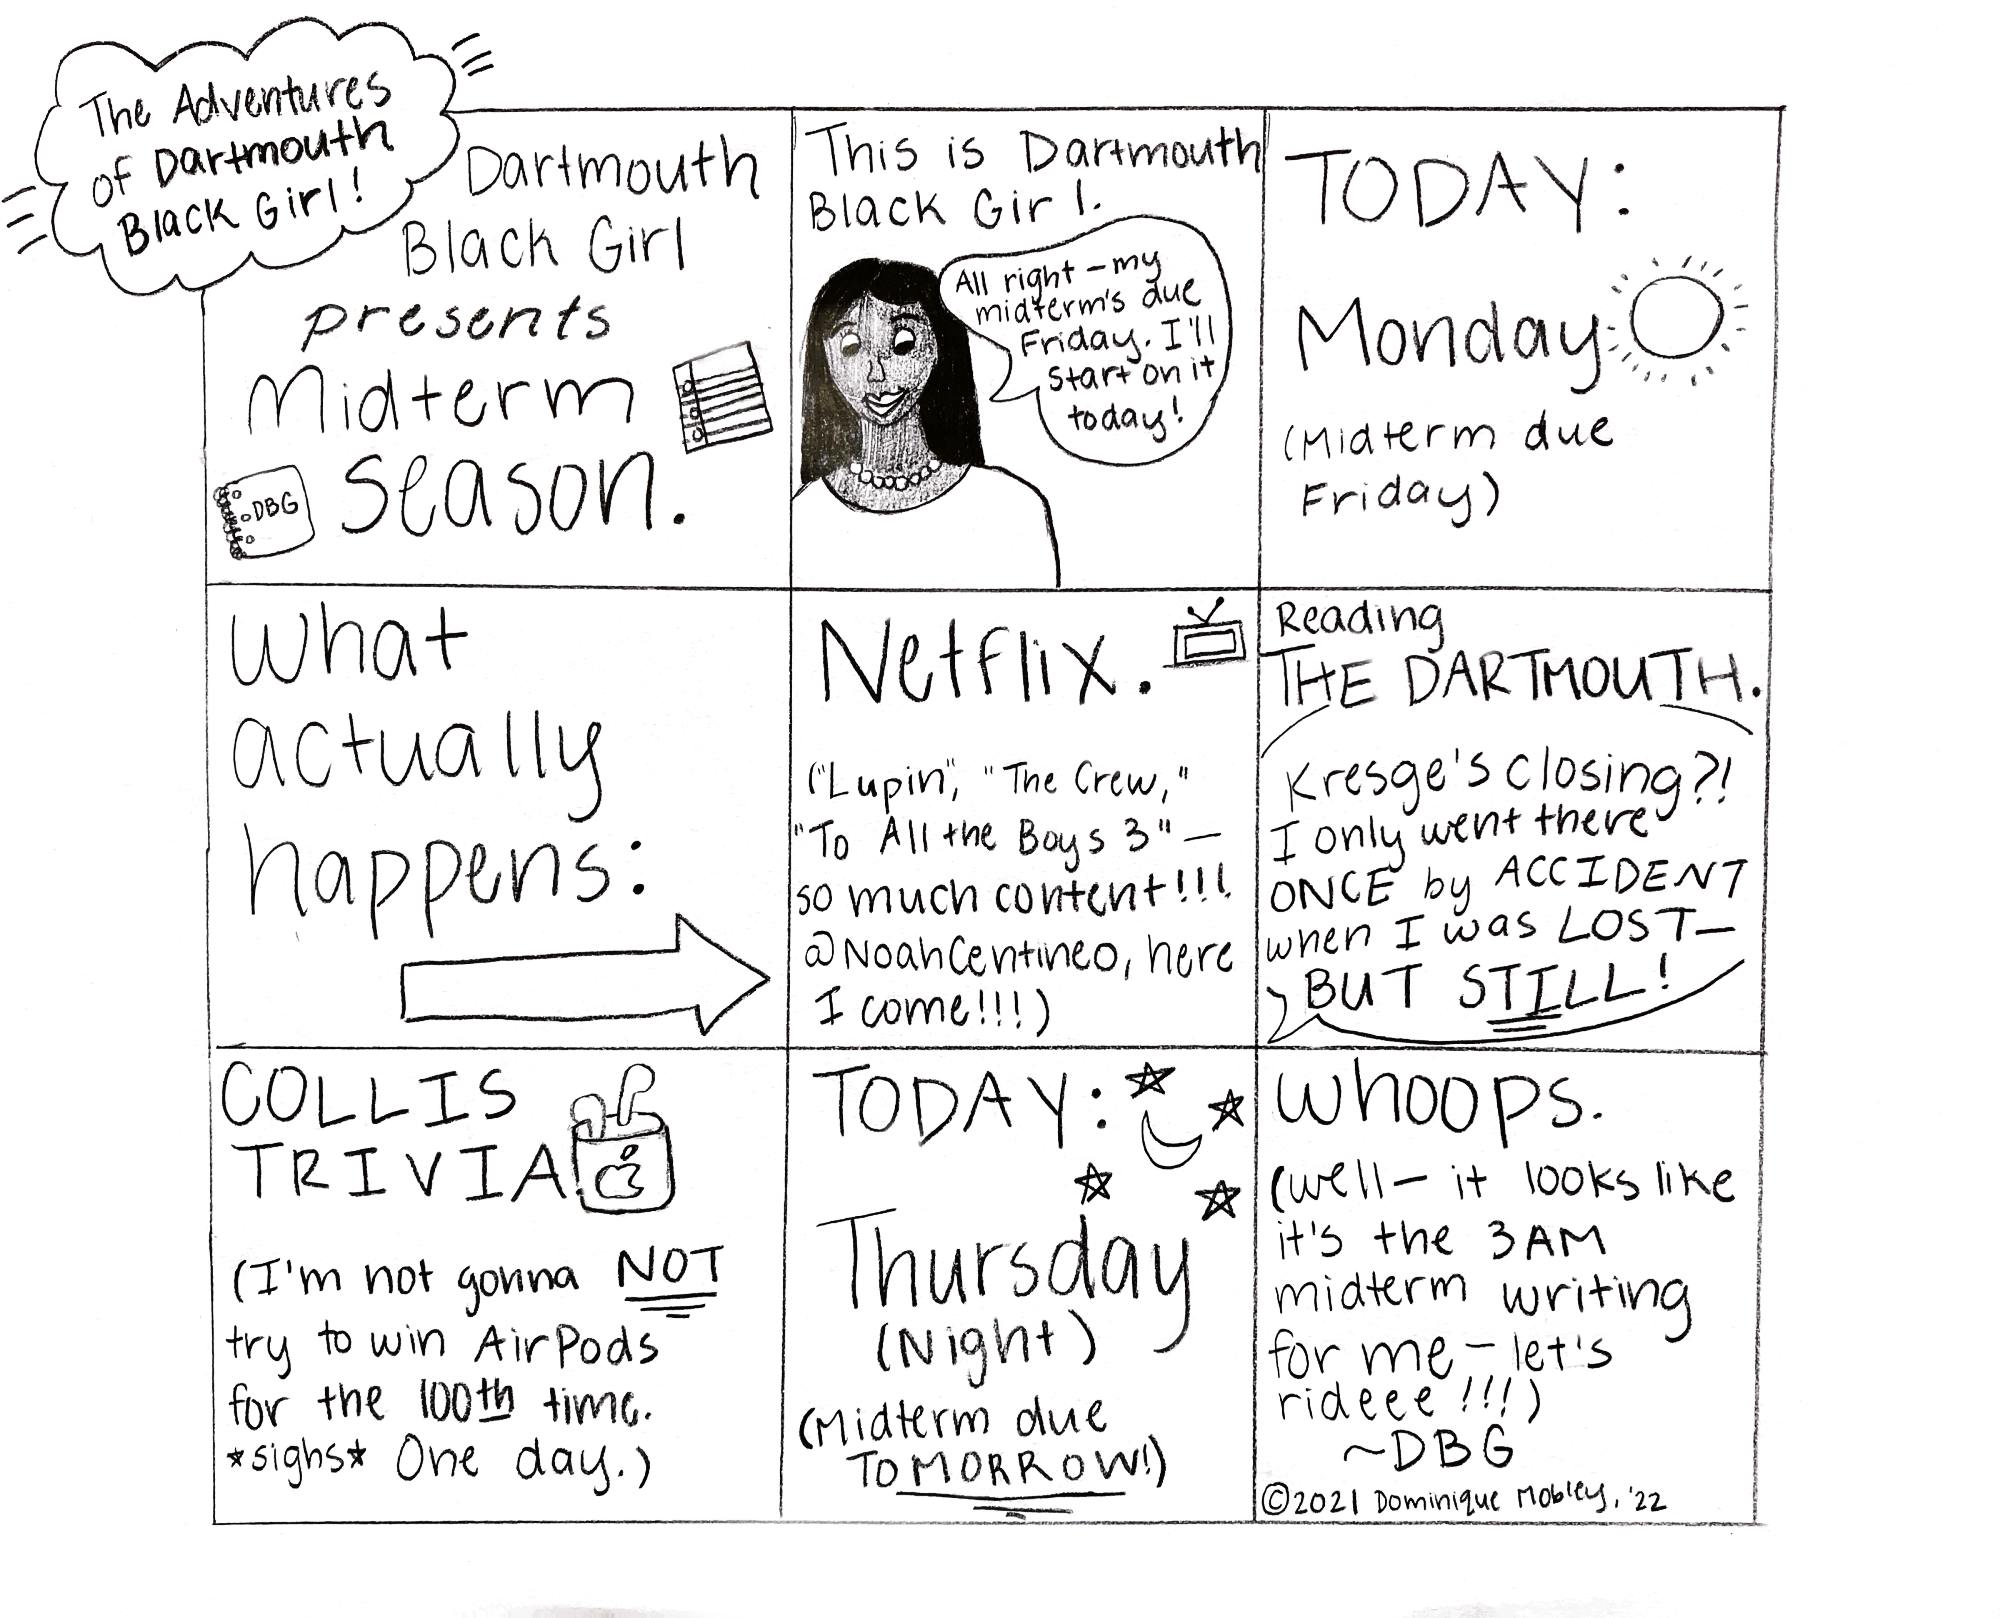 The Adventures
of Dartmouth
Black Girl!
Dartmouth
Black Girl
presents
Midterm
season.
DBG
This is Dartmouth
Black Girl.
All right – my
midterm's due
Friday. I'll
start on it
today!
TODAY:
Monday
(Midterm due
Friday)
What
actually
happens:
Netflix.
("Lupin", "The Crew,"
"To All the Boys 3" —
so much content!!!
@NoahCentineo, here
I come!!!)
Reading
THE DARTMOUTH.
Kresge's closing?!
I only went there
ONCE by ACCIDENT
when I was LOST—
BUT STILL!
COLLIS
TRIVIA.
(I'm not gonna NOT
try to win AirPods
for the 100th time.
*sighs* One day.)
TODAY:
Thursday
(Night)
(Midterm due
TOMORROW!)
Whoops.
(Well — it looks like
it's the 3AM
midterm writing
for me – let's
rideee!!!)
~DBG
©2021 Dominique Mobley, '22